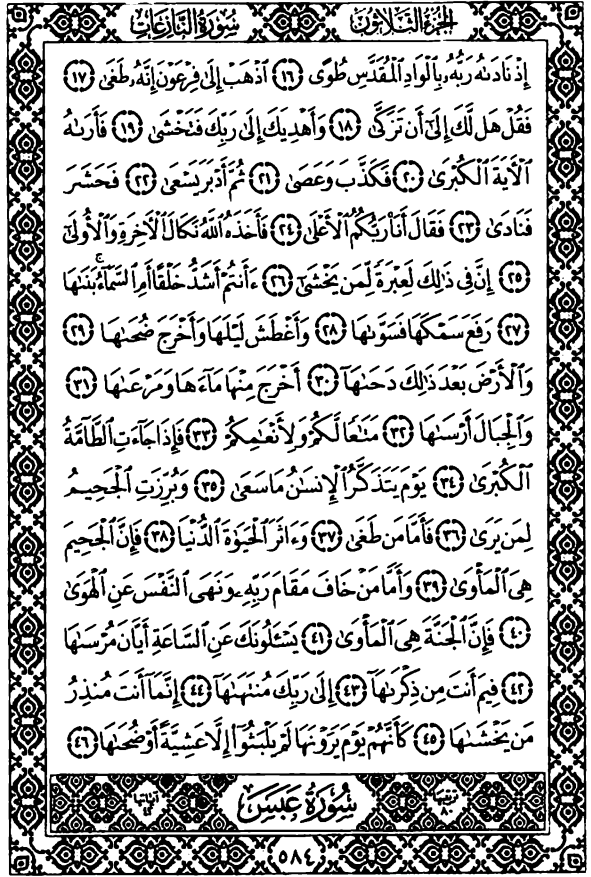 الجزء الثلاثون سورة النازعات
إِذْ نَادَىٰهُ رَبُّهُۥ بِٱلْوَادِ ٱلْمُقَدَّسِ طُوًى ١٦ ٱذْهَبْ إِلَىٰ فِرْعَوْنَ إِنَّهُۥ طَغَىٰ ١٧
فَقُلْ هَل لَّكَ إِلَىٰٓ أَن تَزَكَّىٰ ١٨ وَأَهْدِيَكَ إِلَىٰ رَبِّكَ فَتَخْشَىٰ ١٩ فَأَرَىٰهُ
ٱلْـَٔايَةَ ٱلْكُبْرَىٰ ٢٠ فَكَذَّبَ وَعَصَىٰ ٢١ ثُمَّ أَدْبَرَ يَسْعَىٰ ٢٢ فَحَشَرَ
فَنَادَىٰ ٢٣ فَقَالَ أَنَا۠ رَبُّكُمُ ٱلْأَعْلَىٰ ٢٤ فَأَخَذَهُ ٱللَّهُ نَكَالَ ٱلْـَٔاخِرَةِ وَٱلْأُولَىٰٓ
٢٥ إِنَّ فِى ذَٰلِكَ لَعِبْرَةً لِّمَن يَخْشَىٰٓ ٢٦ ءَأَنتُمْ أَشَدُّ خَلْقًا أَمِ ٱلسَّمَآءُ ۚ بَنَىٰهَا
٢٧ رَفَعَ سَمْكَهَا فَسَوَّىٰهَا ٢٨ وَأَغْطَشَ لَيْلَهَا وَأَخْرَجَ ضُحَىٰهَا ٢٩
وَٱلْأَرْضَ بَعْدَ ذَٰلِكَ دَحَىٰهَآ ٣٠ أَخْرَجَ مِنْهَا مَآءَهَا وَمَرْعَىٰهَا ٣١
وَٱلْجِبَالَ أَرْسَىٰهَا ٣٢ مَتَٰعًا لَّكُمْ وَلِأَنْعَٰمِكُمْ ٣٣ فَإِذَا جَآءَتِ ٱلطَّآمَّةُ
ٱلْكُبْرَىٰ ٣٤ يَوْمَ يَتَذَكَّرُ ٱلْإِنسَٰنُ مَا سَعَىٰ ٣٥ وَبُرِّزَتِ ٱلْجَحِيمُ
لِمَن يَرَىٰ ٣٦ فَأَمَّا مَن طَغَىٰ ٣٧ وَءَاثَرَ ٱلْحَيَوٰةَ ٱلدُّنْيَا ٣٨ فَإِنَّ ٱلْجَحِيمَ
هِىَ ٱلْمَأْوَىٰ ٣٩ وَأَمَّا مَنْ خَافَ مَقَامَ رَبِّهِۦ وَنَهَى ٱلنَّفْسَ عَنِ ٱلْهَوَىٰ
٤٠ فَإِنَّ ٱلْجَنَّةَ هِىَ ٱلْمَأْوَىٰ ٤١ يَسْـَٔلُونَكَ عَنِ ٱلسَّاعَةِ أَيَّانَ مُرْسَىٰهَا
٤٢ فِيمَ أَنتَ مِن ذِكْرَىٰهَآ ٤٣ إِلَىٰ رَبِّكَ مُنتَهَىٰهَآ ٤٤ إِنَّمَآ أَنتَ مُنذِرُ
مَن يَخْشَىٰهَا ٤٥ كَأَنَّهُمْ يَوْمَ يَرَوْنَهَا لَمْ يَلْبَثُوٓا۟ إِلَّا عَشِيَّةً أَوْ ضُحَىٰهَا ٤٦
ترتيبها ٨٠ سورة عبس آياتها ٤٢
٥٨٤